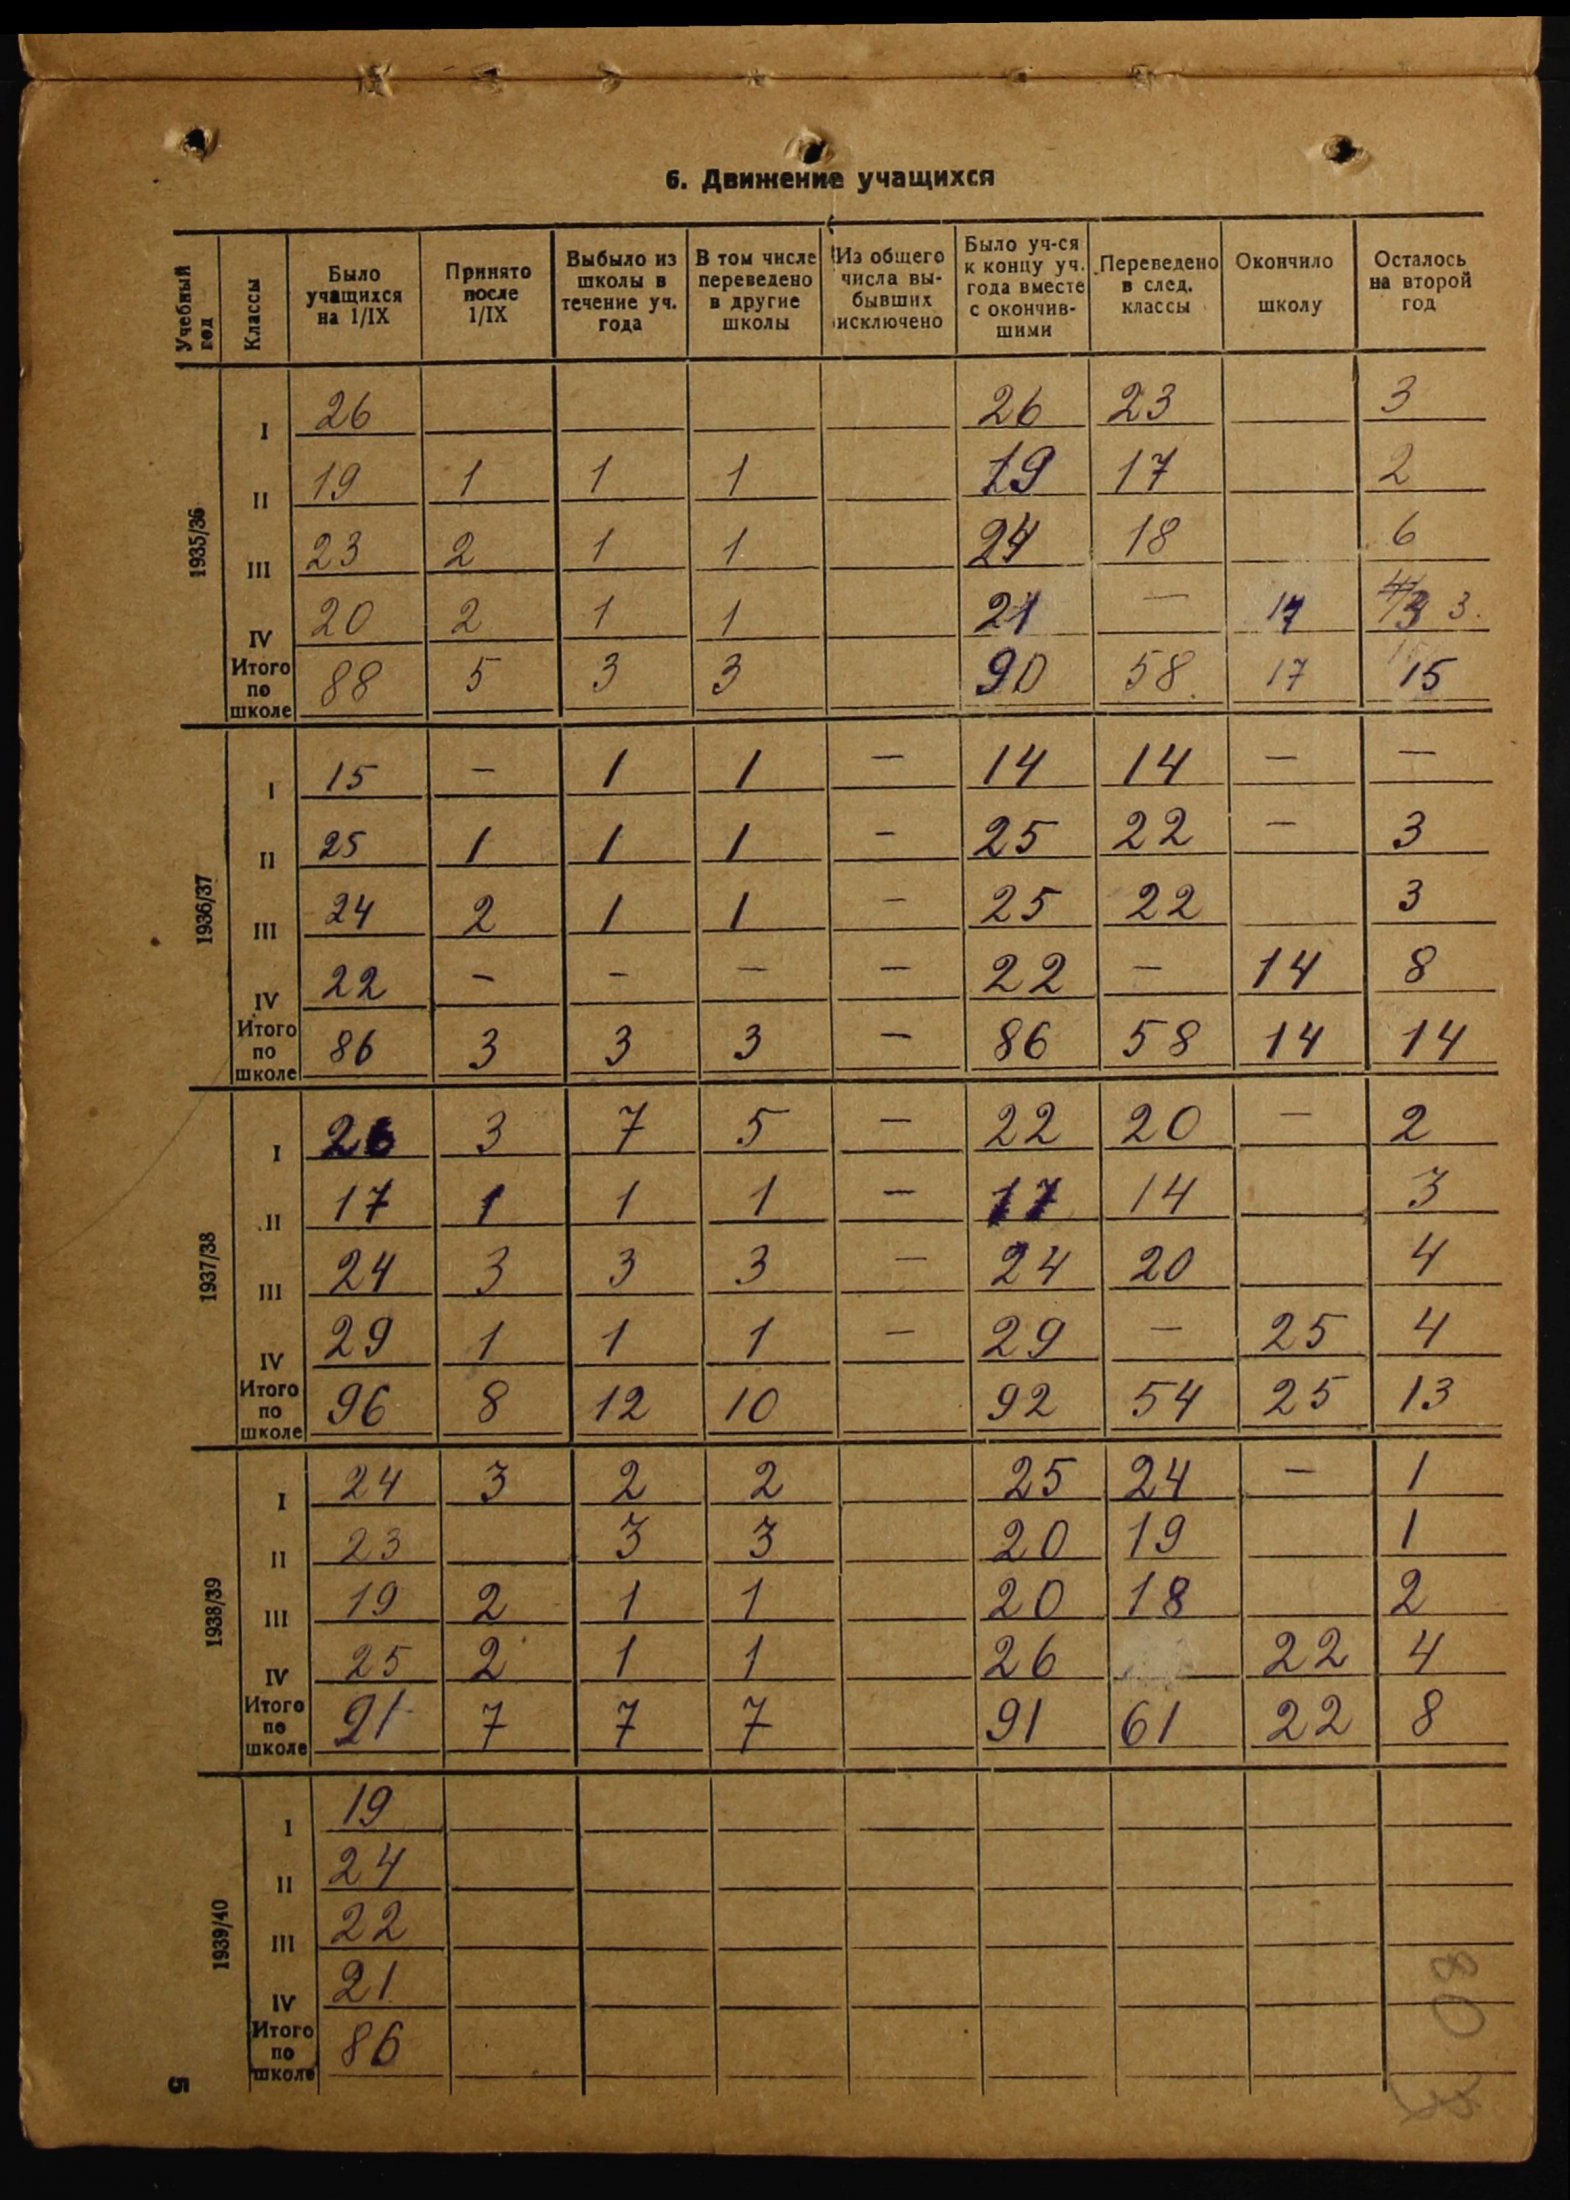 6. Движение учащихся
Учебный год | Классы | Было учащихся на 1/IX | Принято после 1/IX | Выбыло из школы в течение уч. года | В том числе переведено в другие школы | Из общего числа вы-бывших исключено | Было уч-ся к концу уч. года вместе с окончив-шими | Переведено в след. классы | Окончило школу | Осталось на второй год
1935/36
I 26 26 23 3
II 19 1 1 1 19 17 2
III 23 2 1 1 24 18 6
IV 20 2 1 1 21 — 17 3 3.
Итого по школе 88 5 3 3 90 58. 17 15
1936/37
I 15 — 1 1 — 14 14 — —
II 25 1 1 1 — 25 22 — 3
III 24 2 1 1 — 25 22 3
IV 22 — — — — 22 — 14 8
Итого по школе 86 3 3 3 — 86 58 14 14
1937/38
I 26 3 7 5 — 22 20 — 2
II 17 1 1 1 — 17 14 3
III 24 3 3 3 — 24 20 4
IV 29 1 1 1 — 29 — 25 4
Итого по школе 96 8 12 10 92 54 25 13
1938/39
I 24 3 2 2 25 24 — 1
II 23 3 3 20 19 1
III 19 2 1 1 20 18 2
IV 25 2 1 1 26 22 4
Итого по школе 91 7 7 7 91 61 22 8
1939/40
I 19
II 24
III 22
IV 21
Итого по школе 86
80
5